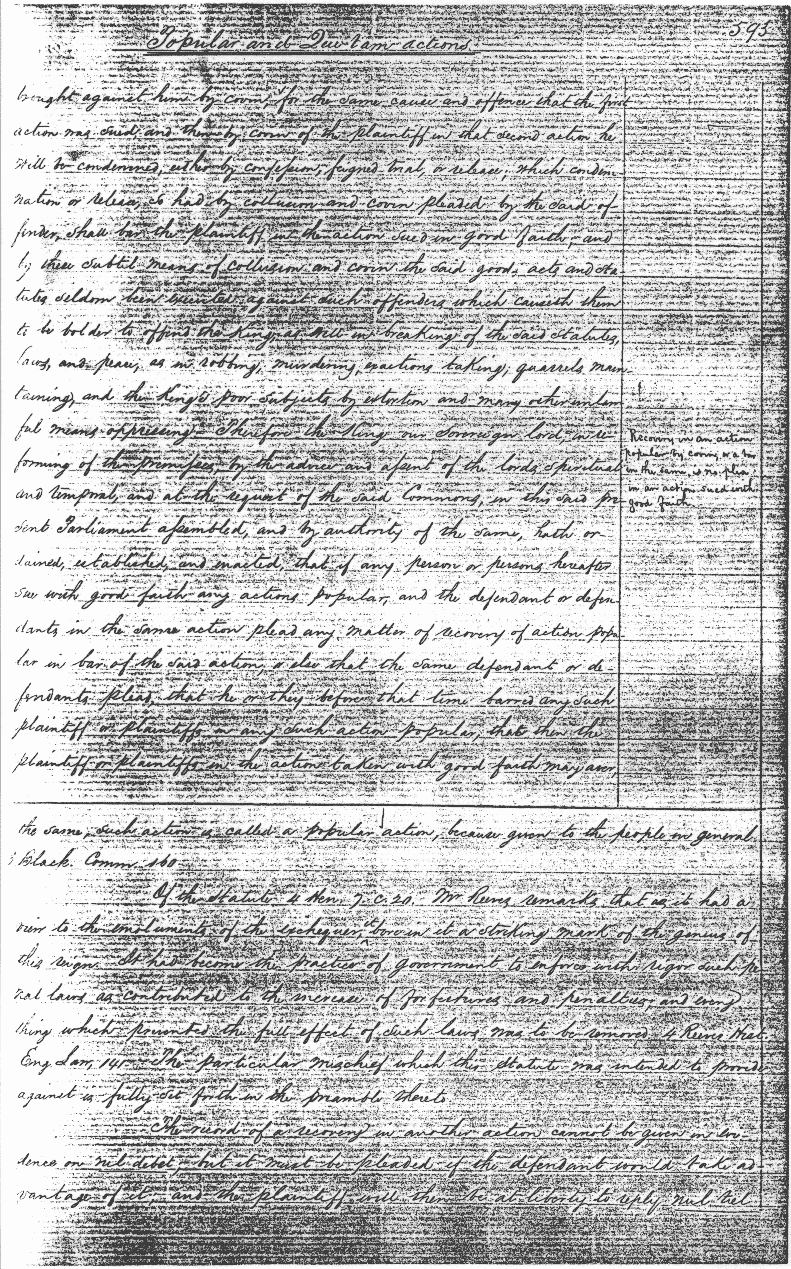 595
Popular and Qui tam actions.
brought against him by covin, for the same cause and offence that the first
action was sued, and then by covin of the plaintiff in that second action he
will be condemned, either by confession, feigned trial, or release, which condem-
nation or release, so had by collusion and covin pleaded by the said of-
fender, shall bar the plaintiff in the action sued in good faith, and
by these subtil means of collusion and covin the said good, acts and sta
tutes seldom been executed against such offenders which causeth them
to be bolder to offend the King, as well in breaking of the said statutes,
laws, and peace, as in robbing, murdering, exactions taking, quarrels main-
taining, and the King's poor subjects by extortion and many other unlaw
ful means oppressing. Therefore the King our sovereign lord, in re-
forming of the premises, by the advice and assent of the lords spiritual
and temporal, and at the request of the said Commons, in this said pre
sent Parliament assembled, and by authority of the same, hath or-
dained, established, and enacted, that if any person or persons hereafter
sue with good faith any actions popular, and the defendant or defen-
dants in the same action plead any matter of recovery of action popu
lar in bar of the said action, or else that the same defendant or de-
fendants plead, that he or they before that time barred any such
plaintiff or plaintiffs in any such action popular, that then the
plaintiff or plaintiffs in the action taken with good faith may aver,
Recovery in an action
popular by covin, or a bar
in the same, is no plea
in an action sued with
good faith.
the same, such action is called a popular action, because given to the people in general.
3 Black. Comm. 160
Of the statute 4 Hen. 7. c. 20. Mr Reeves remarks, that as it had a
view to the emoluments of the exchequer, it bore in it a striking mark of the genius of
this reign. It had become the practice of government to enforce with rigor such pe
nal laws as contributed to the increase of forfeitures and penalties, and every
thing which prevented the full effect of such laws was to be removed. 4 Reeves Hist.
Eng. Law, 141. The particular mischief which this statute was intended to provide
against is fully set forth in the preamble thereto.
The record of a recovery in another action cannot be given in evi-
dence on nil debet, but it must be pleaded if the defendant would take ad-
vantage of it and the plaintiff will then be at liberty to reply nul tiel